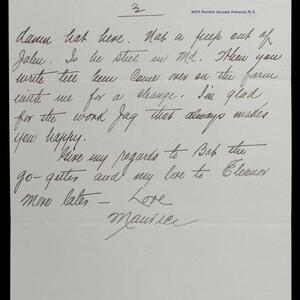 2
920 Rhode Island Avenue, N.E.
damn hot here. Not a peep out of
John. Is he still in Md. When you
write tell him come over on the farm
with me for a change. I'm glad
for the work Jag that always makes
you happy.
Give my regards to Bob the
go-getter and my love to Eleanor
More later - Love
Maurice